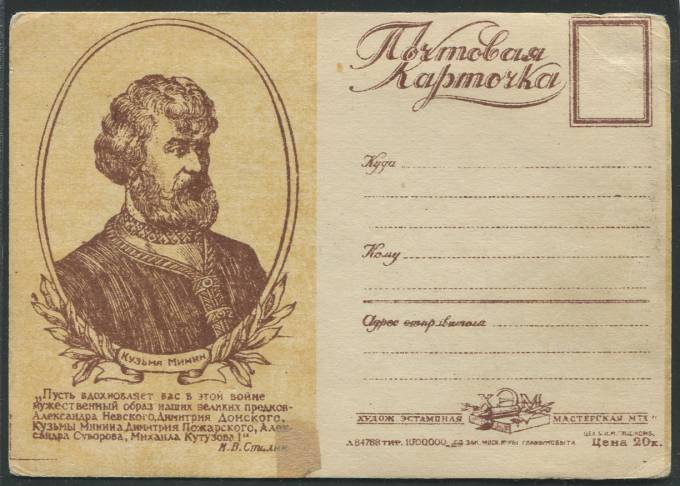 Почтовая
Карточка
Куда
Кому
Адрес отправителя
Кузьма Минин
„Пусть вдохновляет вас в этой войне
мужественный образ наших великих предков-
Александра Невского, Димитрия Донского,
Кузьмы Минина, Димитрия Пожарского, Алек-
сандра Суворова, Михаила Кутузова!"
И. В. Сталин
ХЭМ
ХУДОЖ ЭСТАМПНАЯ МАСТЕРСКАЯ МТХ"
Л 84788 ТИР.
Цена 20к.